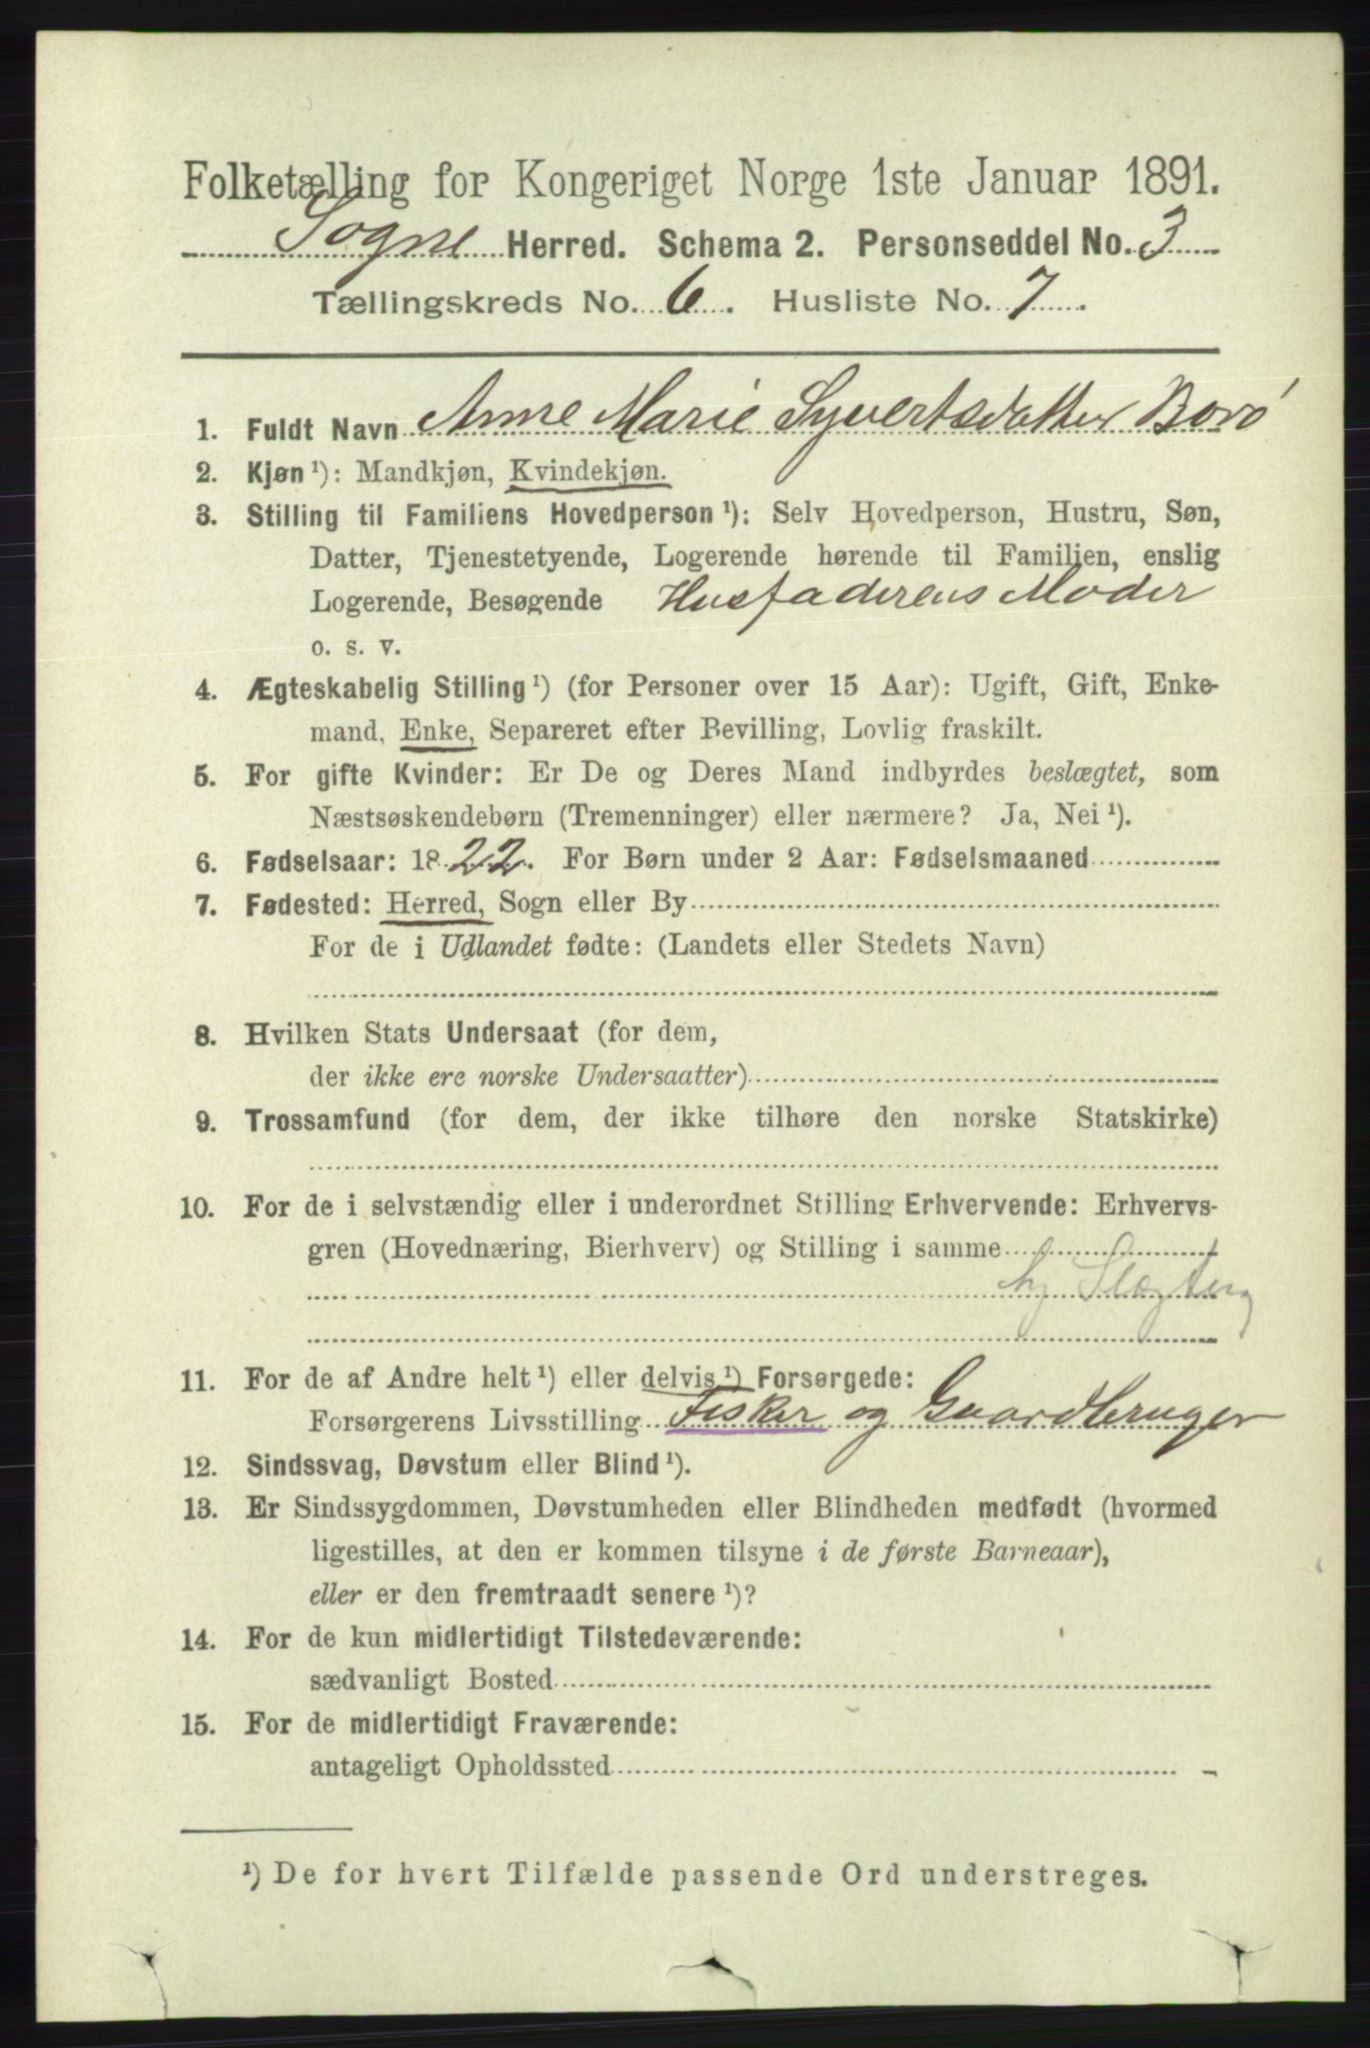 Folketælling for Kongeriget Norge 1ste Januar 1891.
Sogne Herred. Schema 2. Personseddel No. 3
Tællingskreds No. 6. Husliste No. 7
1. Fuldt Navn Anne Marie Syvertsdatter Borö
2. Kjøn ¹): Mandkjøn, Kvindekjøn.
3. Stilling til Familiens Hovedperson ¹): Selv Hovedperson, Hustru, Søn,
Datter, Tjenestetyende, Logerende hørende til Familien, enslig
Logerende, Besøgende Husfaderens Moder
o. s. v.
4. Ægteskabelig Stilling ¹) (for Personer over 15 Aar): Ugift, Gift, Enke-
mand, Enke, Separeret efter Bevilling, Lovlig fraskilt.
5. For gifte Kvinder: Er De og Deres Mand indbyrdes beslægtet, som
Næstsøskendebørn (Tremenninger) eller nærmere? Ja, Nei ¹).
6. Fødselsaar: 1822. For Børn under 2 Aar: Fødselsmaaned
7. Fødested: Herred, Sogn eller By
For de i Udlandet fødte: (Landets eller Stedets Navn)
8. Hvilken Stats Undersaat (for dem,
der ikke ere norske Undersaatter)
9. Trossamfund (for dem, der ikke tilhøre den norske Statskirke)
10. For de i selvstændig eller i underordnet Stilling Erhvervende: Erhvervs-
gren (Hovednæring, Bierhverv) og Stilling i samme
hj Slægtng
11. For de af Andre helt ¹) eller delvis ¹) Forsørgede:
Forsørgerens Livsstilling Fisker og Gaardbruger
12. Sindssvag, Døvstum eller Blind ¹).
13. Er Sindssygdommen, Døvstumheden eller Blindheden medfødt (hvormed
ligestilles, at den er kommen tilsyne i de første Barneaar),
eller er den fremtraadt senere ¹)?
14. For de kun midlertidigt Tilstedeværende:
sædvanligt Bosted
15. For de midlertidigt Fraværende:
antageligt Opholdssted
¹) De for hvert Tilfælde passende Ord understreges.